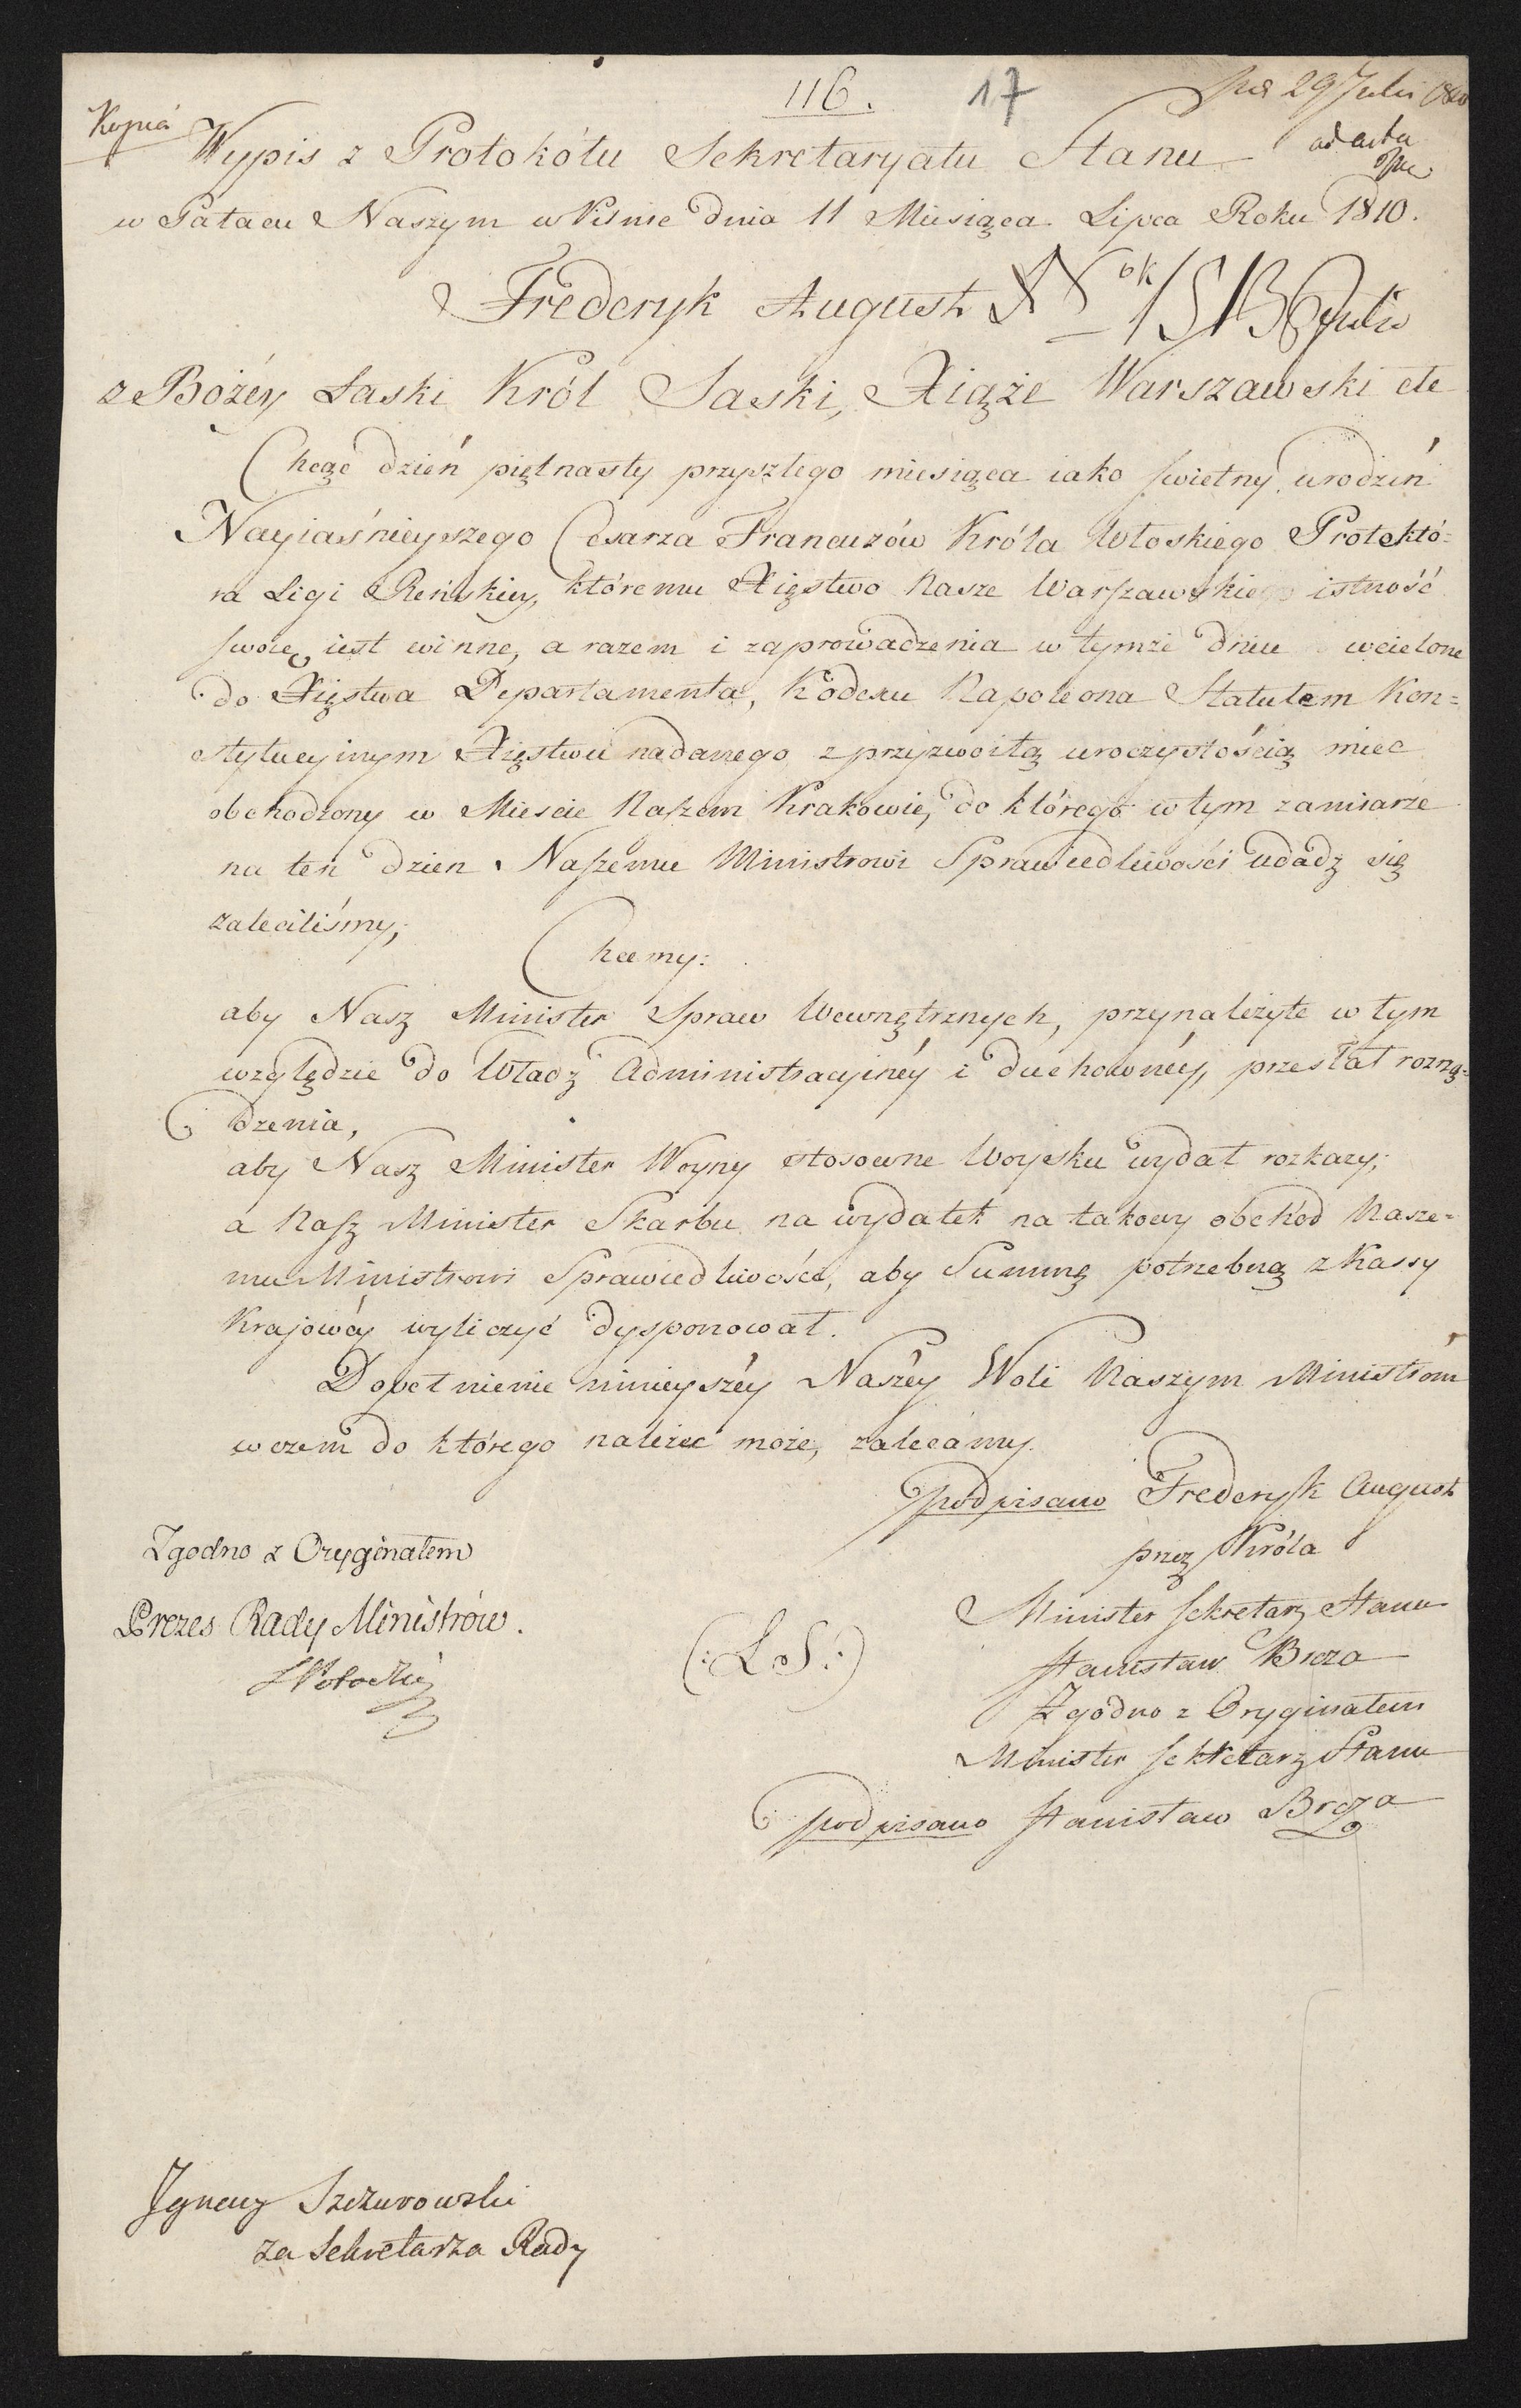 116. 17
29 Julii
Kopia
ad acta
Wypis z Protokółu Sekretaryatu Stanu
w Pałacu Naszym w Pilnie dnia 11 Miesiąca Lipca Roku 1810.
Frederyk August
z Bożéy Łaski Król Saski, Xiąże Warszawski etc
Chcąc dzień piętnasty przyszłego miesiąca iako świetny urodzin
Nayiaśnieyszego Cesarza Francuzów Króla Włoskiego Protektó=
ra Ligi Reńskiey, któremu Xięstwo Nasze Warszawskie istność
swoię iest winne, a razem i zaprowadzenia w tymże dniu w cielone
do Xięstwa Departamenta, Kodexu Napoleona Statutem Kon=
stytucyinym Xięstwu nadanego z przyzwoitą uroczystością mieć
obchodzony w Mieście Naszem Krakowie, do którego w tym zamiarze
na ten dzien Naszemu Ministrowi Sprawiedliwości udadź się
zaleciliśmy;
Chcemy:
aby Nasz Minister Spraw Wewnętrznych, przynależyte w tym
względzie do Władz Administracyinéy i duchownéy, przesłał rozrzą=
dzenia,
aby Nasz Minister Woyny stosowne Woysku wydał rozkazy;
a Nasz Minister Skarbu na wydatek na takowy obchód Nasze=
mu Ministrowi Sprawiedliwości, aby Summę potrzebną z Kassy
Krajowéy wyliczyć dysponował.
Dopełnienie ninieyszéy Naszéy Woli Naszym Ministrom
w czem do którego należeć może, zalecamy.
podpisano Frederyk August
przez Króla
Minister Sekretarz Stanu
Stanisław Breza
Zgodno z Oryginałem
Minister Sekretarz Stanu
podpisano Stanisław Breza
(:L S:)
Zgodno z Oryginałem
Prezes Rady Ministrów.
Potocki
Ignacy Szczurowski
za Sekretarza Rady